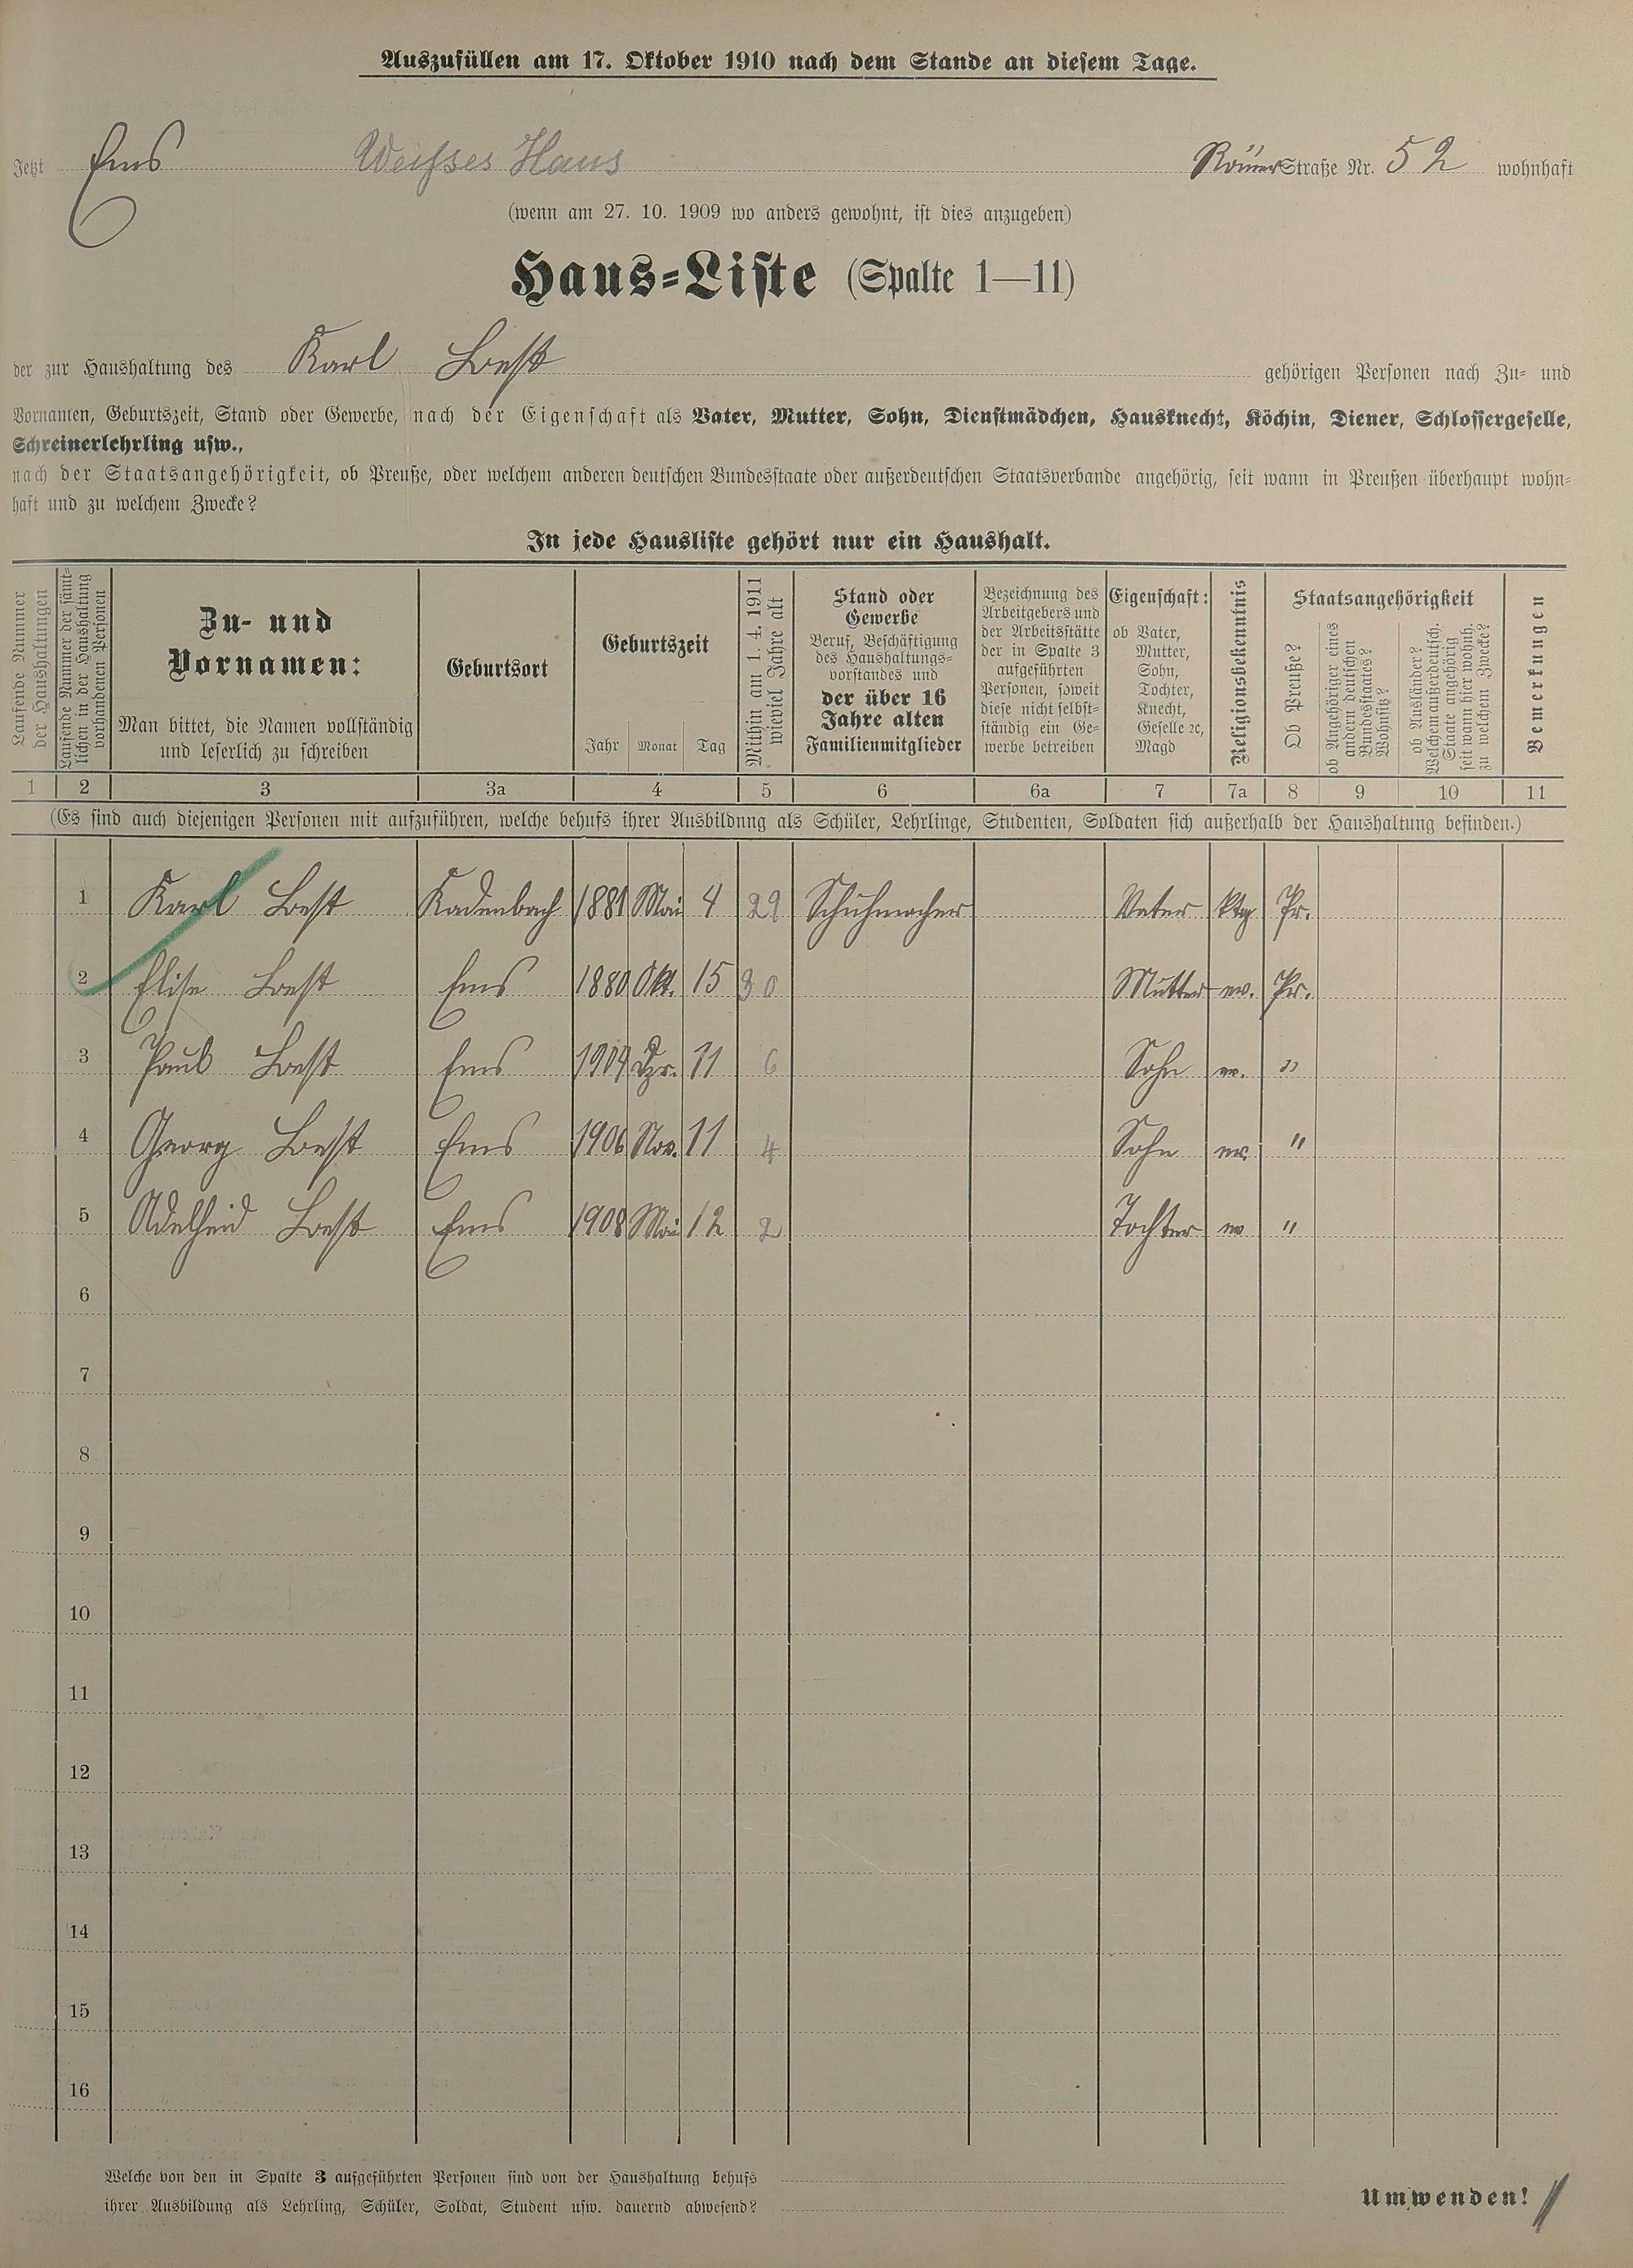 Auszufüllen am 17. Oktober 1910 nach dem Stande an diesem Tage.
Jetzt Ems Weisses Haus Römer Straße Nr. 52 wohnhaft
(wenn am 27. 10. 1909 wo anders gewohnt, ist dies anzugeben)
Haus-Liste (Spalte 1—11)
der zur Haushaltung des Karl Best gehörigen Personen nach Zu- und
Vornamen, Geburtszeit, Stand oder Gewerbe, nach der Eigenschaft als Vater, Mutter, Sohn, Dienstmädchen, Hausknecht, Köchin, Diener, Schlossergeselle,
Schreinerlehrling usw.,
nach der Staatsangehörigkeit, ob Preuße, oder welchem anderen deutschen Bundesstaate oder außerdeutschen Staatsverbande angehörig, seit wann in Preußen überhaupt wohn-
haft und zu welchem Zwecke?
In jede Hausliste gehört nur ein Haushalt.
Laufende Nummer
der Haushaltungen
Laufende Nummer der sämt-
lichen in der Haushaltung
vorhandenen Personen
Zu- und
Vornamen:
Man bittet, die Namen vollständig
und leserlich zu schreiben
Geburtsort
Geburtszeit
Jahr Monat Tag
Mithin am 1. 4. 1911
wieviel Jahre alt
Stand oder
Gewerbe
Beruf, Beschäftigung
des Haushaltungs-
vorstandes und
der über 16
Jahre alten
Familienmitglieder
Bezeichnung des
Arbeitgebers und
der Arbeitsstätte
der in Spalte 3
aufgeführten
Personen, soweit
diese nicht selbst-
ständig ein Ge-
werbe betreiben
Eigenschaft:
ob Vater,
Mutter,
Sohn,
Tochter,
Knecht,
Geselle ec,
Magd
Religionsbekenntnis
Staatsangehörigkeit
Ob Preuße?
ob Angehöriger eines
andern deutschen
Bundesstaates?
Wohnsitz?
ob Ausländer?
Welchem außerdeutsch.
Staate angehörig
seit wann hier wohnh.
zu welchem Zwecke?
Bemerkungen
1 2 3 3a 4 5 6 6a 7 7a 8 9 10 11
(Es sind auch diejenigen Personen mit aufzuführen, welche behufs ihrer Ausbildung als Schüler, Lehrlinge, Studenten, Soldaten sich außerhalb der Haushaltung befinden.)
1 Karl Best Kadenbach 1881 Mai 4 29 Schuhmacher Vater ktg Pr.
2 Elise Best Ems 1880 Okt. 15 30 Mutter ev. Pr.
3 Paul Best Ems 1904 Dzr. 11 6 Sohn ev. "
4 Georg Best Ems 1906 Nov. 11 4 Sohn ev. "
5 Adelheid Best Ems 1908 Mai 12 2 Tochter ev "
6
7
8
9
10
11
12
13
14
15
16
Welche von den in Spalte 3 aufgeführten Personen sind von der Haushaltung behufs
ihrer Ausbildung als Lehrling, Schüler, Soldat, Student usw. dauernd abwesend?
Umwenden!